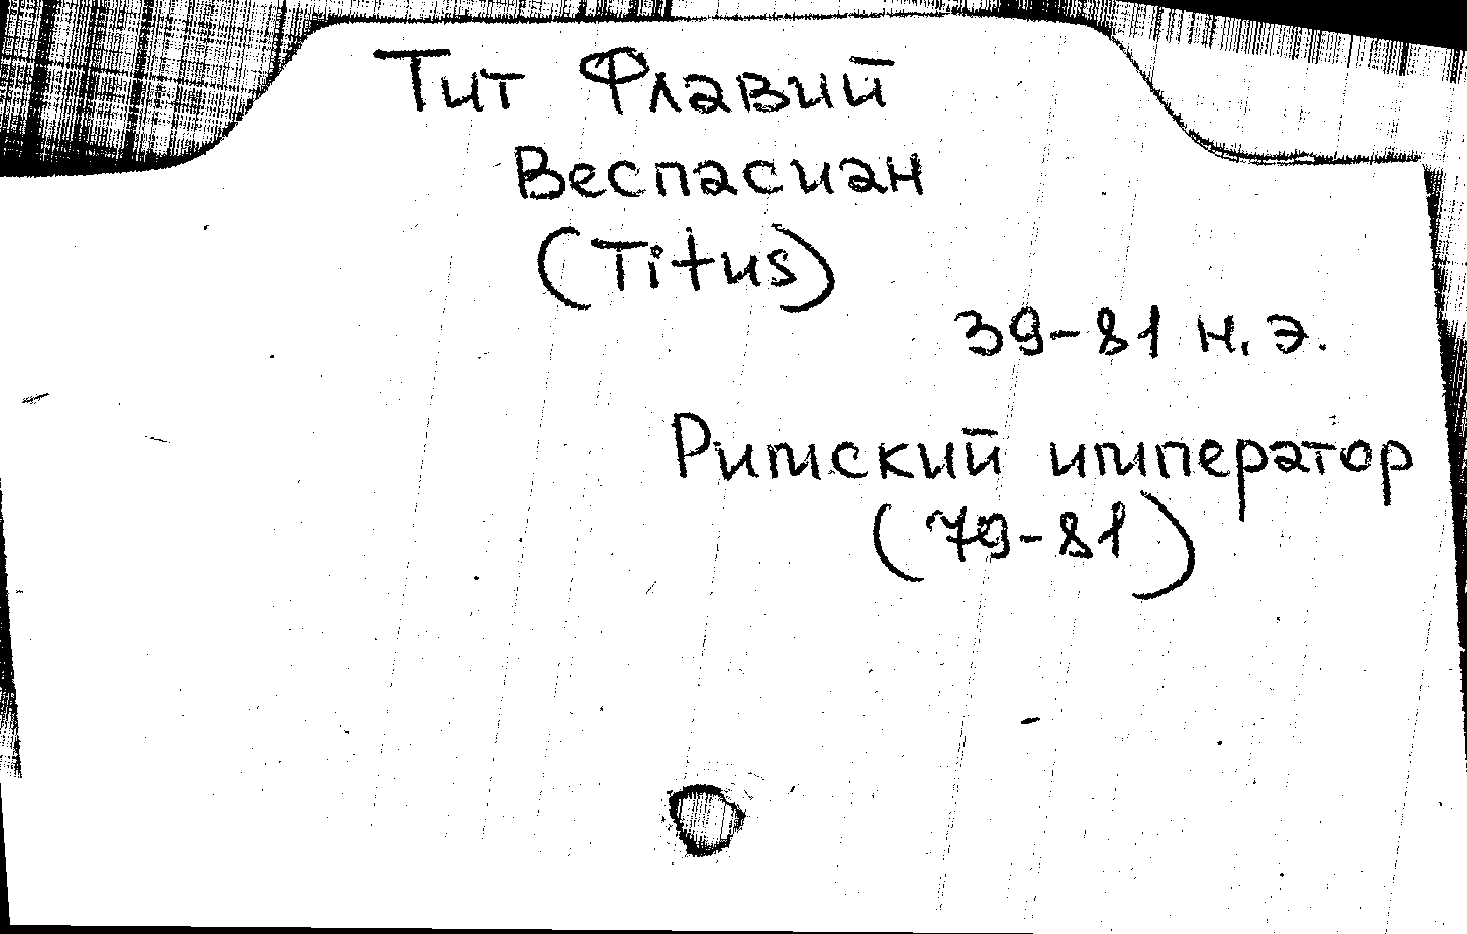 Тит Флавий
Веспасиан
(Titus)
39-81 н.э.
Римский император
(79-81)